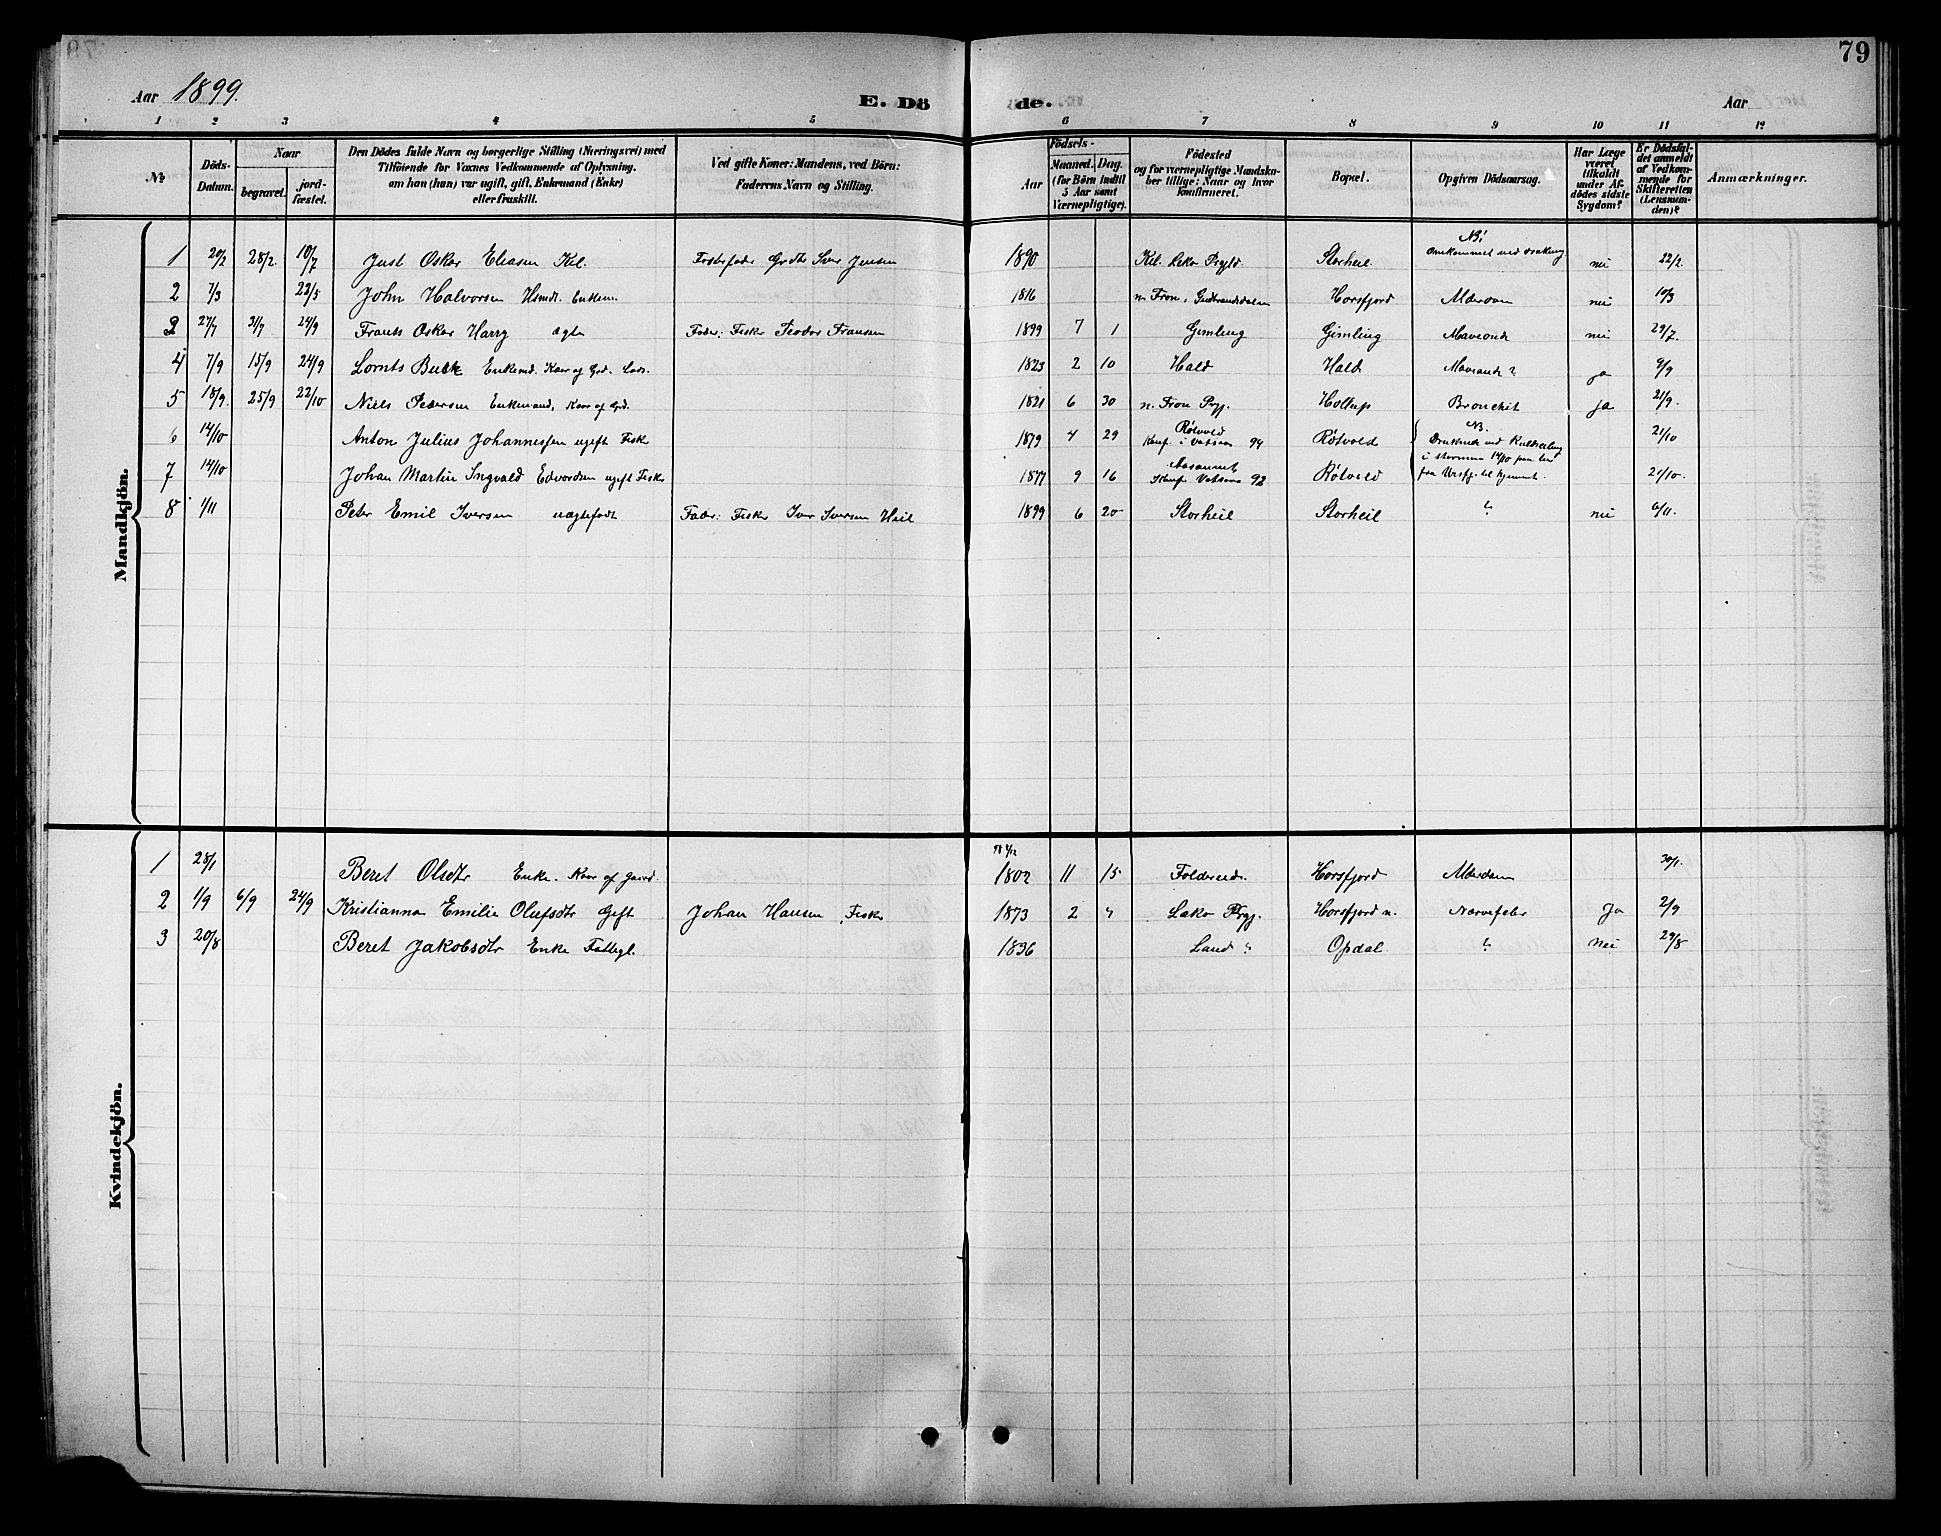 79
Aar 1899. E. Dö de. Aar
1 2 3 4 5 6 7 8 9 10 11 12
№ Döds-Datum. Naar begravet. jord-fæstet. Den Dödes fulde Navn og borgerlige Stilling (Næringsvei) med Tilföiende for Voxnes Vedkommende af Oplysning, om han (hun) var ugift, gift, Enkemand (Enke) eller fraskilt. Ved gifte Koner: Mandens, ved Börn: Faderens Navn og Stilling. Födsels- Aar Maaned. Dag. (for Börn indtil 5 Aar samt Værnepligtige). Födested og for værnepligtige Mandska-ber tillige: Naar og hvor konfirmeret. Bopæl. Opgiven Dödsaarsag. Har Læge været tilkaldt under Af-dödes sidste Sygdom? Er Dödsfal-det anmeldt af Vedkom-mende for Skifteretten (Lensman-den)? Anmærkninger.
Mandkjön.
1 20/2 28/2 10/7 Just Oskar Eliasen Kil. Fosterfader Grdbr Iver Jensen 1890 Kil. Leko Prgld Storheil. NB! Omkommet ved drukning nei 22/2.
2 7/3 22/5 John Halvorsen Hsmd. Enkem. 1816 n. Fron, Gudbrandsdalen Horsfjord Alderdom nei 10/3
3 27/7 31/7 24/9 Frants Oskar Harry ægte Fader: Fisker Teodor Fransen 1899 7 1 Gimling Gimling Maveond nei 29/7.
4 7/9 15/9 24/9 Lornts Buck Enkemd. Kaar og Grd. Lods. 1823 2 10 Hald Hald Maveonde? ja 9/9
5 18/9. 25/9 22/10 Niels Pedersen Enkemand, Kaar af Grd. 1821 6 30 n. Fron Prgj. Hollup Bronchit Ja 21/9.
6 14/10 Anton Julius Johannessen ugift Fisker 1879 4 29 Rötvold Konf. i Vatsaas 94 Rötvold NB. Druknede ved Kuldseiling i stormen 14/10 paa fra Horsfj. til hjemmet. 21/10
7 14/10 Johan Martin Ingvald Edvardsen ugift Fisker 1877 9 16 Konf. Vatsaas 92 Rötvold 21/10.
8 1/11 Peter Emil Iversen uægtefødt Fader: Fisker Iver Iversen Heil 1899 6 20 Storheil Storheil ? nei 6/11.
Kvindekjön.
1 28/1 Beret Olsdtr Enke. Kaar af Gaard. 1802 11 15 Foldereid. Horsfjord Alderdom 30/1.
2 1/9 6/9 24/9 Kristianna Emilie Olufsdtr Gift Johan Hansen Fisker 1873 2 4 Leko Prgj. Horsfjord n. Nervefeber Ja 2/9
3 20/8 Beret Jakobsdtr Enke Fattegl. 1836 Land " Opdal ? nei 29/8